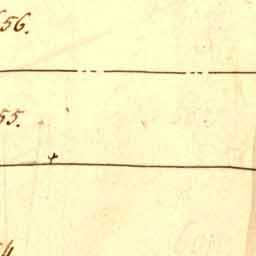 56.
55.